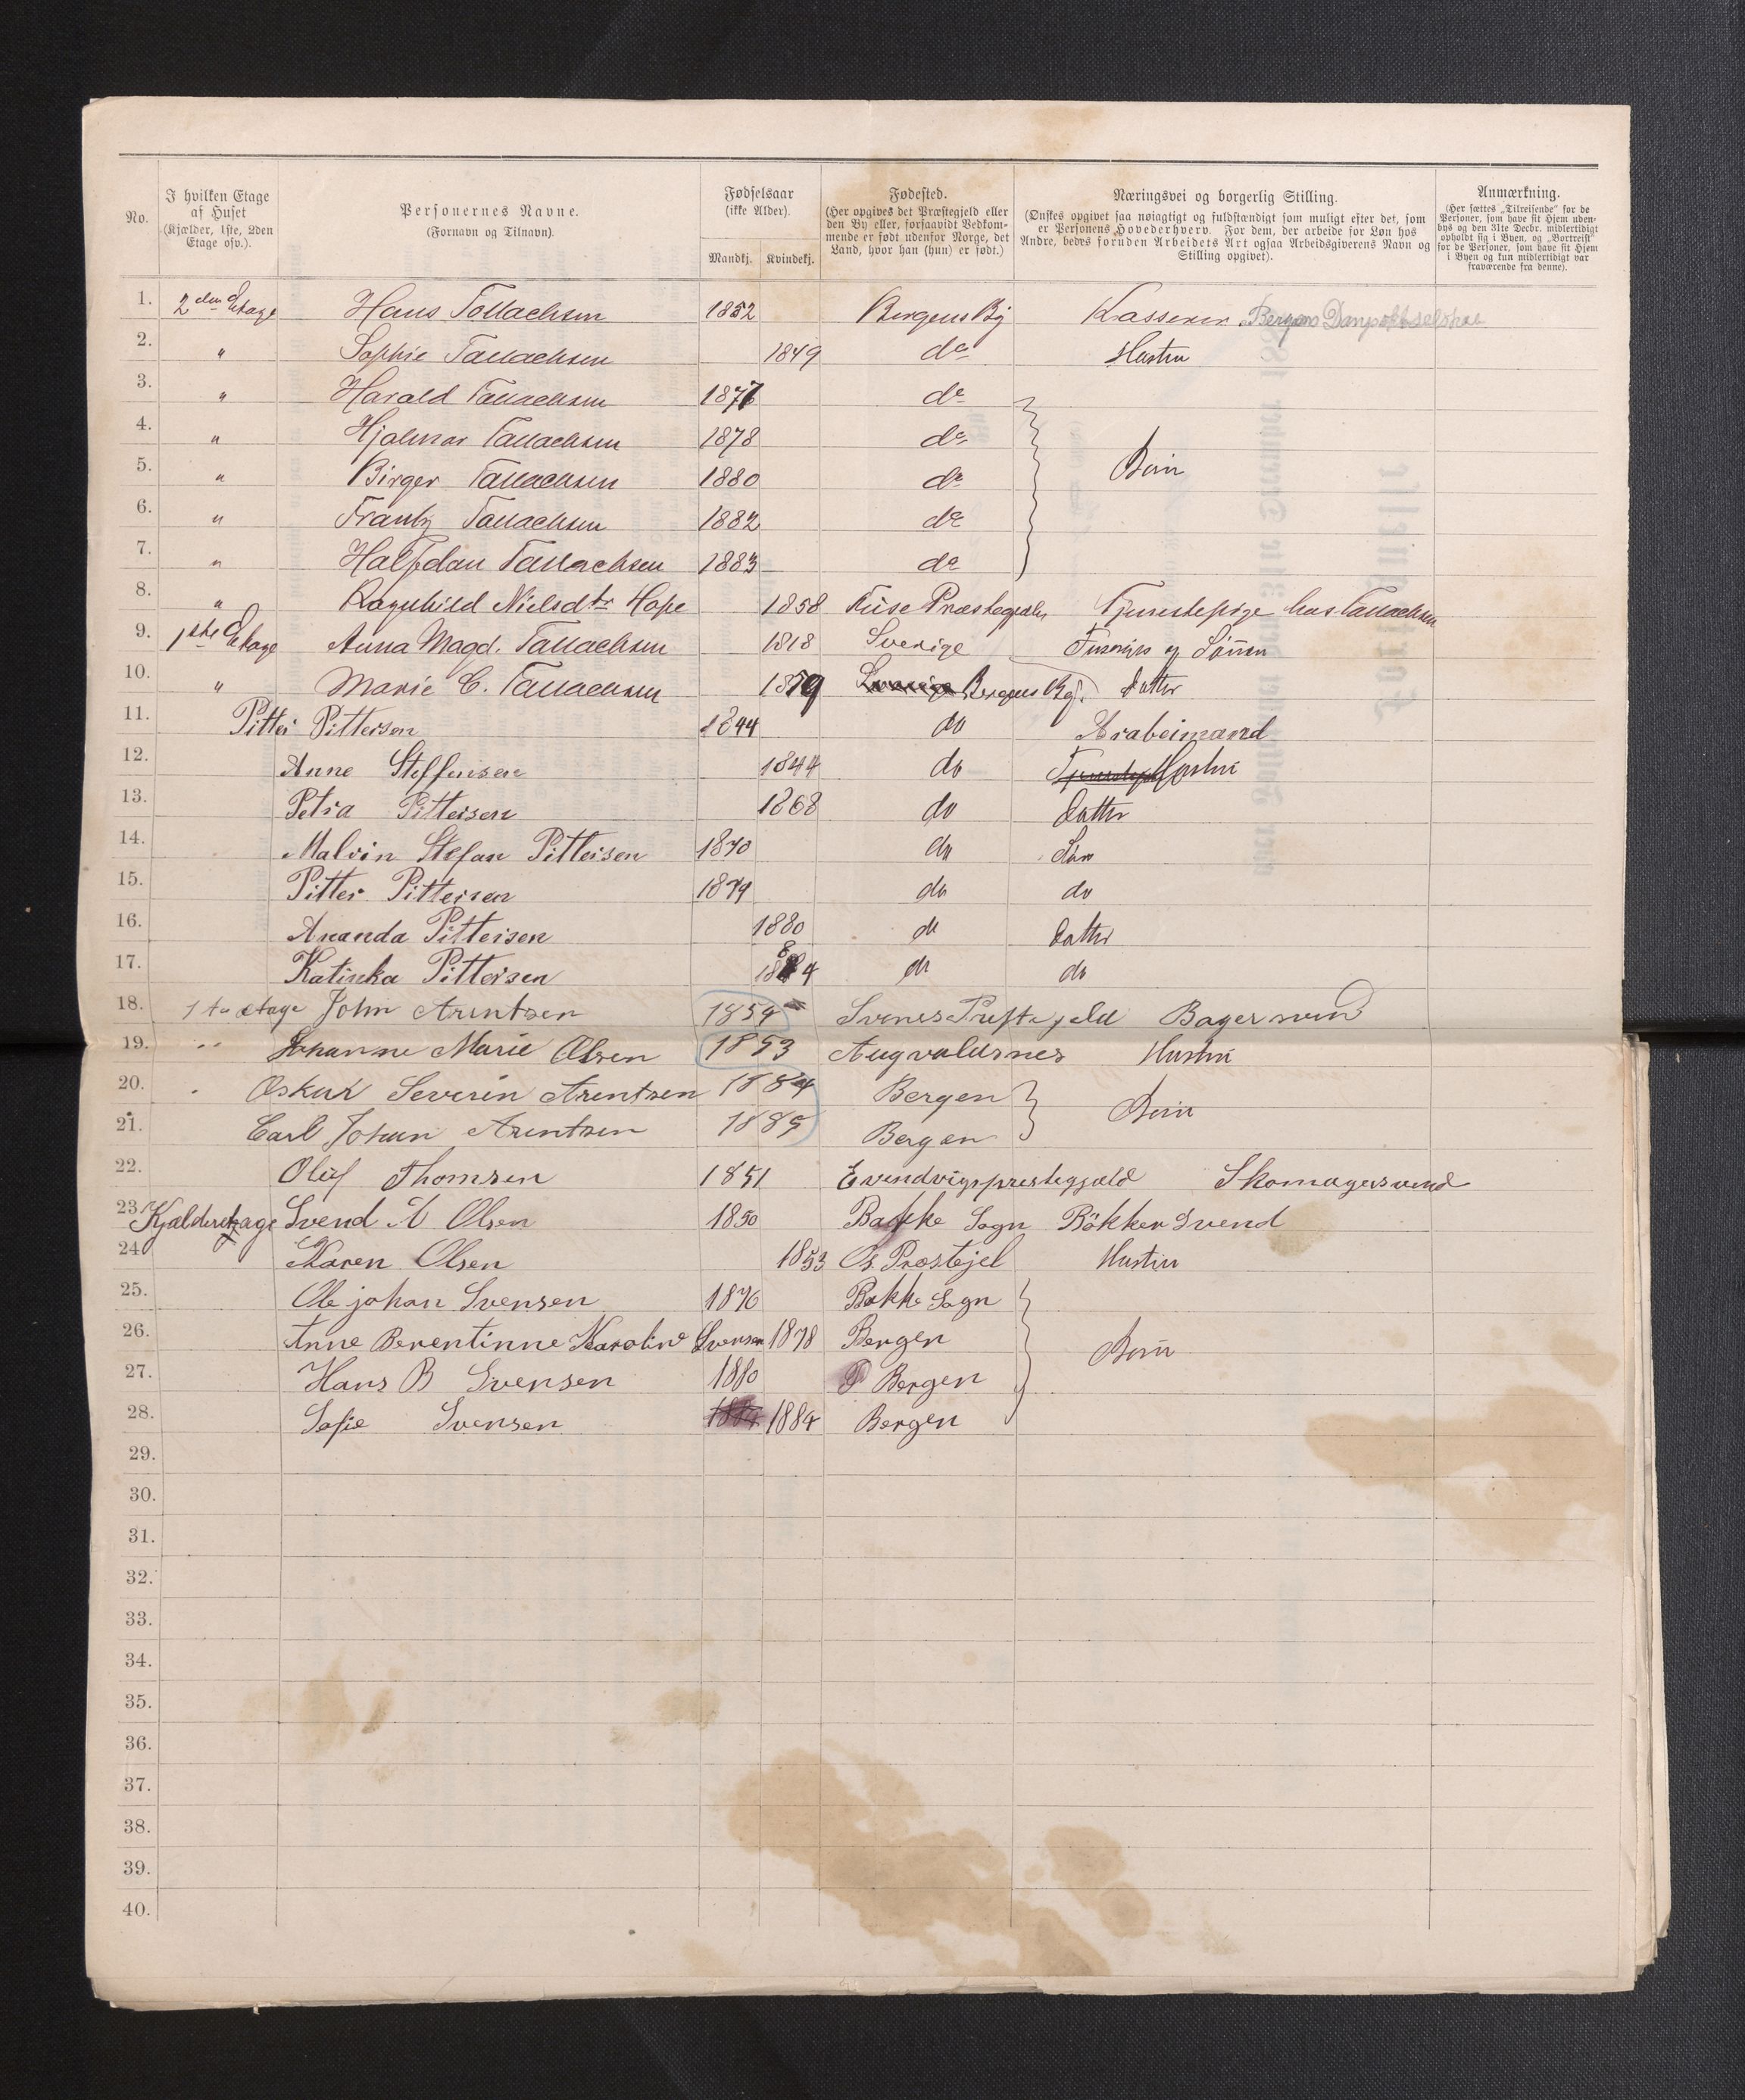 No.
I hvilken Etage af Huset (Kjælder, 1ste, 2den Etage osv.).
Personernes Navne. (Fornavn og Tilnavn).
Fødselsaar (ikke Alder). Mandkj. Kvindekj.
Fødested. (Her opgives det Præstegjeld eller den By eller, forsaavidt Vedkommende er født udenfor Norge, det Land, hvor han (hun) er født.)
Næringsvei og borgerlig Stilling. (Ønskes opgivet saa nøiagtigt og fuldstændigt som muligt efter det, som er Personens Hovederhverv. For dem, der arbeide for Løn hos Andre, bedes foruden Arbeidets Art ogsaa Arbeidsgiverens Navn og Stilling opgivet).
Anmærkning. (Her sættes „Tilreisende" for de Personer, som have sit Hjem udenbys og den 31te Decbr. midlertidigt opholdt sig i Byen, og „Bortreist" for de Personer, som have sit Hjem i Byen og kun midlertidigt var fraværende fra denne).
1. 2den Etage Hans Tallachsen 1852 Bergens By Kasserer Bergens Dampskbselskab
2. " Sophie Tallachsen 1849 do Hustru
3. " Harald Tallachsen 1877 do
4. " Hjalmar Tallachsen 1878 do
5. " Birger Tallachsen 1880 do Børn
6. " Frantz Tallachsen 1882 do
7. " Halfdan Tallachsen 1883 do
8. " Ragnhild Nielsdtr Hope 1858 Fuse Præstegjeld Tjenestepige hos Tallachsen
9. 1ste Etage Anna Magd. Tallachsen 1818 Sverige og
10. " Marie C. Tallachsen 1859 Sverige Bergens By. Datter
11. Pitter Pittersen 1844 do Arabeimand
12. Anne Steffensen 1844 do Hustru
13. Petra Pittersen 1868 do Datter
14. Malvin Stefan Pittersen 1870 do Søn
15. Pitter Pittersen 1879 do do
16. Ananda Pittersen 1880 do Datter
17. Katinka Pittersen 1884 do do
18. 1ste etage John Arentsen 1859 Bagersvend
19. " Johanne Marie Olsen 1853 Augvaldsnes Hustru
20. " Oskar Severin Arentsen 1884 Bergen Børn
21. Carl Johan Arentsen 1885 Bergen
22. Oluf Thomsen 1851 Evendvigs prestegjæld Skomagersvend
23. Kjælderetage Svend A Olsen 1850 Bakke Sogn Bökker Svend
24. Karen Olsen 1853 Os Præstejel Hustru
25. Ole johan Svensen 1876 Bakke Sogn
26. Anne Berentinne Karoline Svensen 1878 Bergen Børn
27. Hans B Svensen 1880 Bergen
28. Sofie Svensen 1884 1884 Bergen
29.
30.
31.
32.
33.
34.
35.
36.
37.
38.
39.
40.